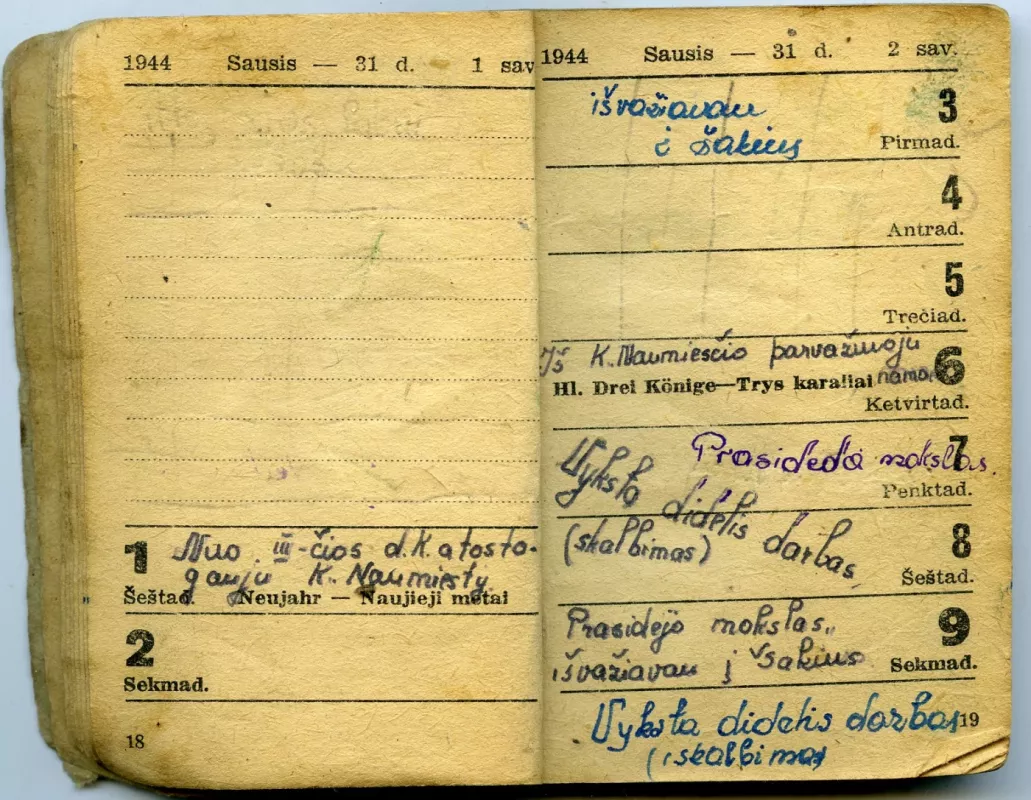 1944 Sausis — 31 d. 1 sav
1
Nuo III-čios d. Katosto-
gauju K. Naumiesty
Šeštad. Neujahr — Naujieji metai
2
Sekmad.
18
1944 Sausis — 31 d. 2 sav.
išvažiavau
į Šakius
3
Pirmad.
4
Antrad.
5
Trečiad.
Iš K. Naumiesčio parvažiuoju
namo
6
Hl. Drei Könige—Trys karaliai
Ketvirtad.
Prasideda mokslas.
7
Penktad.
Vyksta didelis darbas
(skalbimas)
8
Šeštad.
Prasidėjo mokslas,,
išvažiavau į Šakius
9
Sekmad.
Vyksta didelis darbas
(iskalbimas
19